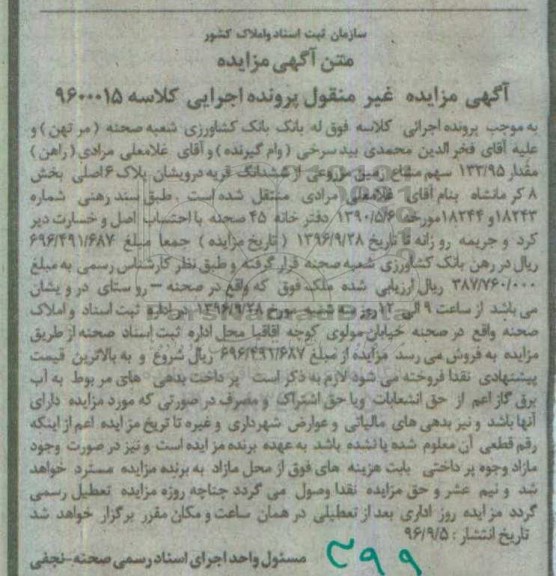 سازمان ثبت اسناد واملاک کشور
متن آگهی مزایده
آگهی مزایده غیر منقول پرونده اجرایی کلاسه ۹۶۰۰۰۱۵
به موجب پرونده اجرائی کلاسه فوق له بانک بانک کشاورزی شعبه صحنه (مر تهن) و
علیه آقای فخر الدین محمدی بیدسرخی (وام گیرنده) و آقای غلامعلی مرادی (راهن)
مقدار ۱۳۲/۹۵ سهم مشاع زمین مزروعی از ششدانگ قریه درویشان پلاک ۶ اصلی بخش
۸ کر مانشاه بنام آقای غلامعلی مرادی منتقل شده است . طبق سند رهنی شماره
۱۸۲۴۳ و ۱۸۲۴۴ مورخه ۱۳۹۰/۵/۶ دفتر خانه ۴۵ صحنه با احتساب اصل و خسارت دیر
کرد و جریمه روزانه تا تاریخ ۱۳۹۶/۹/۲۸ (تاریخ مزایده) جمعا مبلغ ۶۹۶/۴۹۱/۶۸۷
ریال در رهن بانک کشاورزی شعبه صحنه قرار گرفته و طبق نظر کارشناس رسمی به مبلغ
۳۸۷/۷۶۰/۰۰۰ ریال ارزیابی شده ملک فوق که واقع در صحنه – رو ستای در و یشان
می باشد از ساعت ۹ الی ۱۲ روز سه شنبه مورخ ۱۳۹۶/۹/۲۸ در اداره ثبت اسناد و املاک
صحنه واقع در صحنه خیابان مولوی کوچه اقاقیا محل اداره ثبت اسناد صحنه از طریق
مزایده به فروش می رسد مزایده از مبلغ ۶۹۶/۴۹۱/۶۸۷ ریال شروع و به بالاترین قیمت
پیشنهادی نقدا فروخته می شود لازم به ذکر است پر داخت بدهی های مربوط به آب
برق گاز اعم از حق انشعابات ویا حق اشتراک و مصرف در صورتی که مورد مزایده دارای
آنها باشد و نیز بدهی های مالیاتی و عوارض شهرداری و غیره تا تریخ مزایده اعم از اینکه
رقم قطعی آن معلوم شده یا نشده باشد به عهده برنده مزایده است و نیز در صورت وجود
مازاد وجوه پر داختی بابت هزینه های فوق از محل مازاد به برنده مزایده مسترد خواهد
شد و نیم عشر و حق مزایده نقدا وصول می گردد چناچه روزه مزایده تعطیل رسمی
گردد مزایده روز اداری بعد از تعطیلی در همان ساعت و مکان مقرر برگزار خواهد شد
تاریخ انتشار : ۹۶/۹/۵
مسئول واحد اجرای اسناد رسمی صحنه-نجفی
۳۹۹